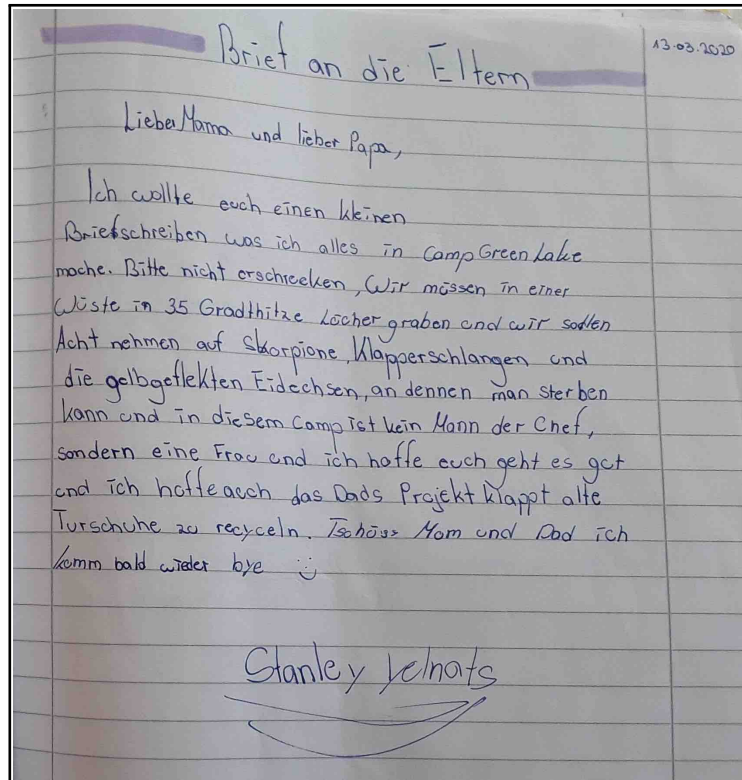 Brief an die Eltern
13.03.2020
Liebe Mama und lieber Papa,
Ich wollte euch einen kleinen
Briefschreiben was ich alles in Camp Green Lake
mache. Bitte nicht erschrecken, Wir müssen in einer
Wüste in 35 Gradhitze Löcher graben und wir sollen
Acht nehmen auf Skorpione, Klapperschlangen und
die gelbgeflekten Eidechsen, an dennen man sterben
kann und in diesem Camp ist kein Mann der Chef,
sondern eine Frau und ich hoffe euch geht es gut
und ich hoffe auch das Dads Projekt klappt alte
Turschuhe zu recyceln. Tschüss Mom und Dad ich
komm bald wieder bye
Stanley Yelnats